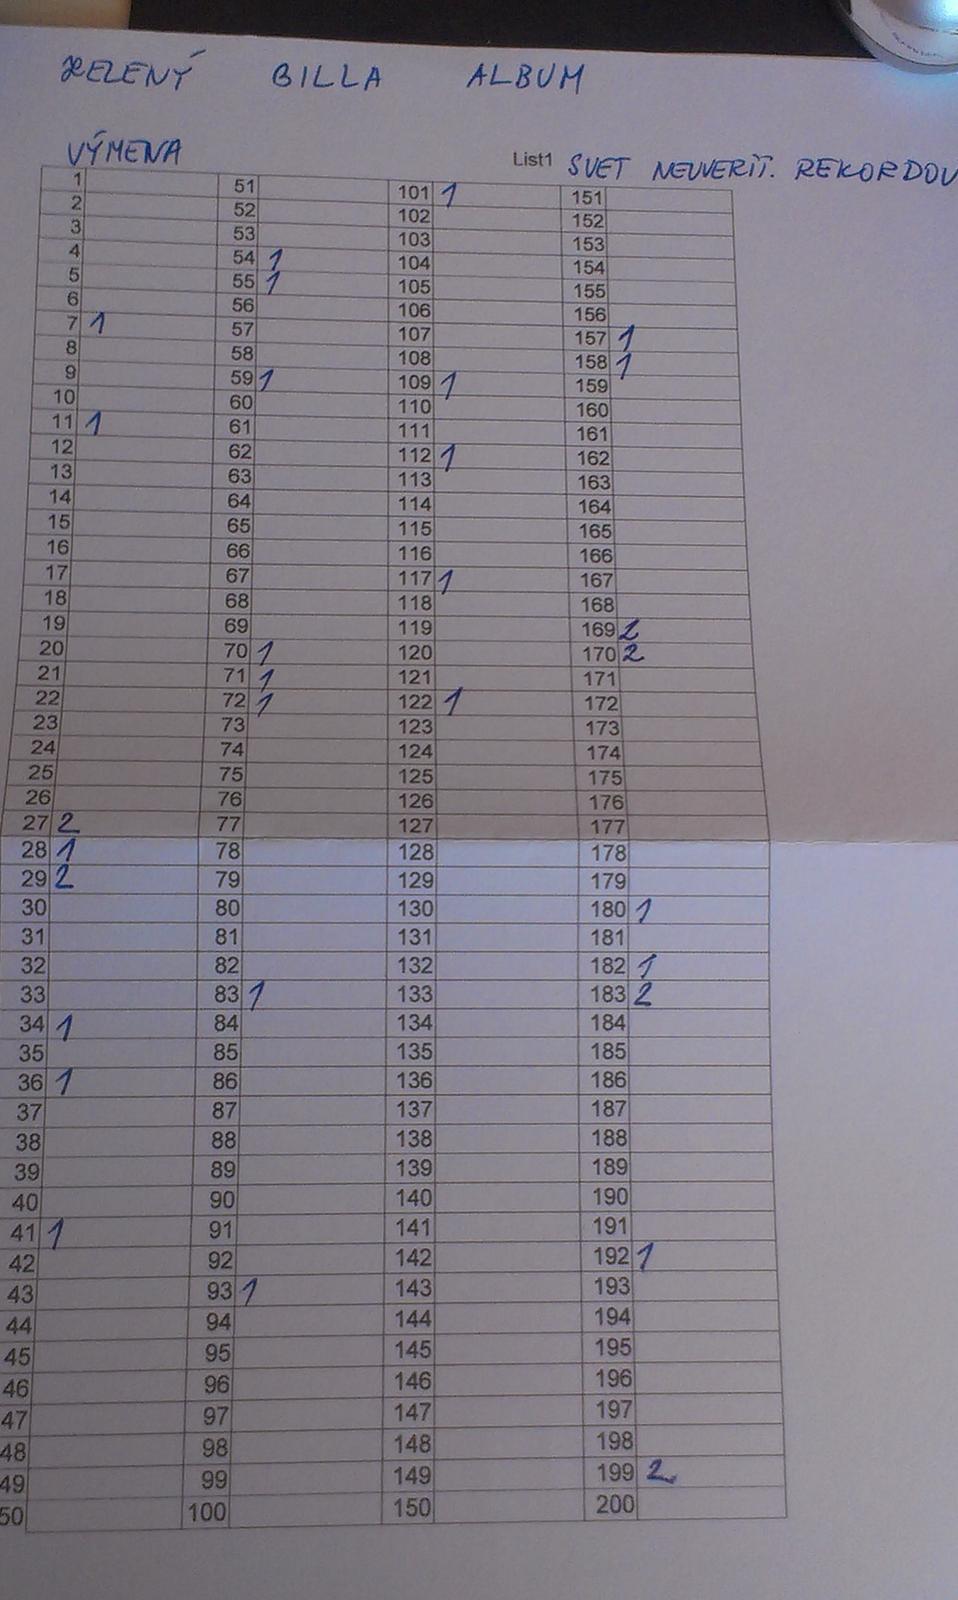 ZELENÝ BILLA ALBUM
VÝMENA List1 SVET NEUVERIT. REKORDOV
1 51 101 1 151
2 52 102 152
3 53 103 153
4 54 1 104 154
5 55 1 105 155
6 56 106 156
7 1 57 107 157 1
8 58 108 158 1
9 59 1 109 1 159
10 60 110 160
11 1 61 111 161
12 62 112 1 162
13 63 113 163
14 64 114 164
15 65 115 165
16 66 116 166
17 67 117 1 167
18 68 118 168
19 69 119 169 2
20 70 1 120 170 2
21 71 1 121 171
22 72 1 122 1 172
23 73 123 173
24 74 124 174
25 75 125 175
26 76 126 176
27 2 77 127 177
28 1 78 128 178
29 2 79 129 179
30 80 130 180 1
31 81 131 181
32 82 132 182 1
33 83 1 133 183 2
34 1 84 134 184
35 85 135 185
36 1 86 136 186
37 87 137 187
38 88 138 188
39 89 139 189
40 90 140 190
41 1 91 141 191
42 92 142 192 1
43 93 1 143 193
44 94 144 194
45 95 145 195
46 96 146 196
47 97 147 197
48 98 148 198
49 99 149 199 2
50 100 150 200